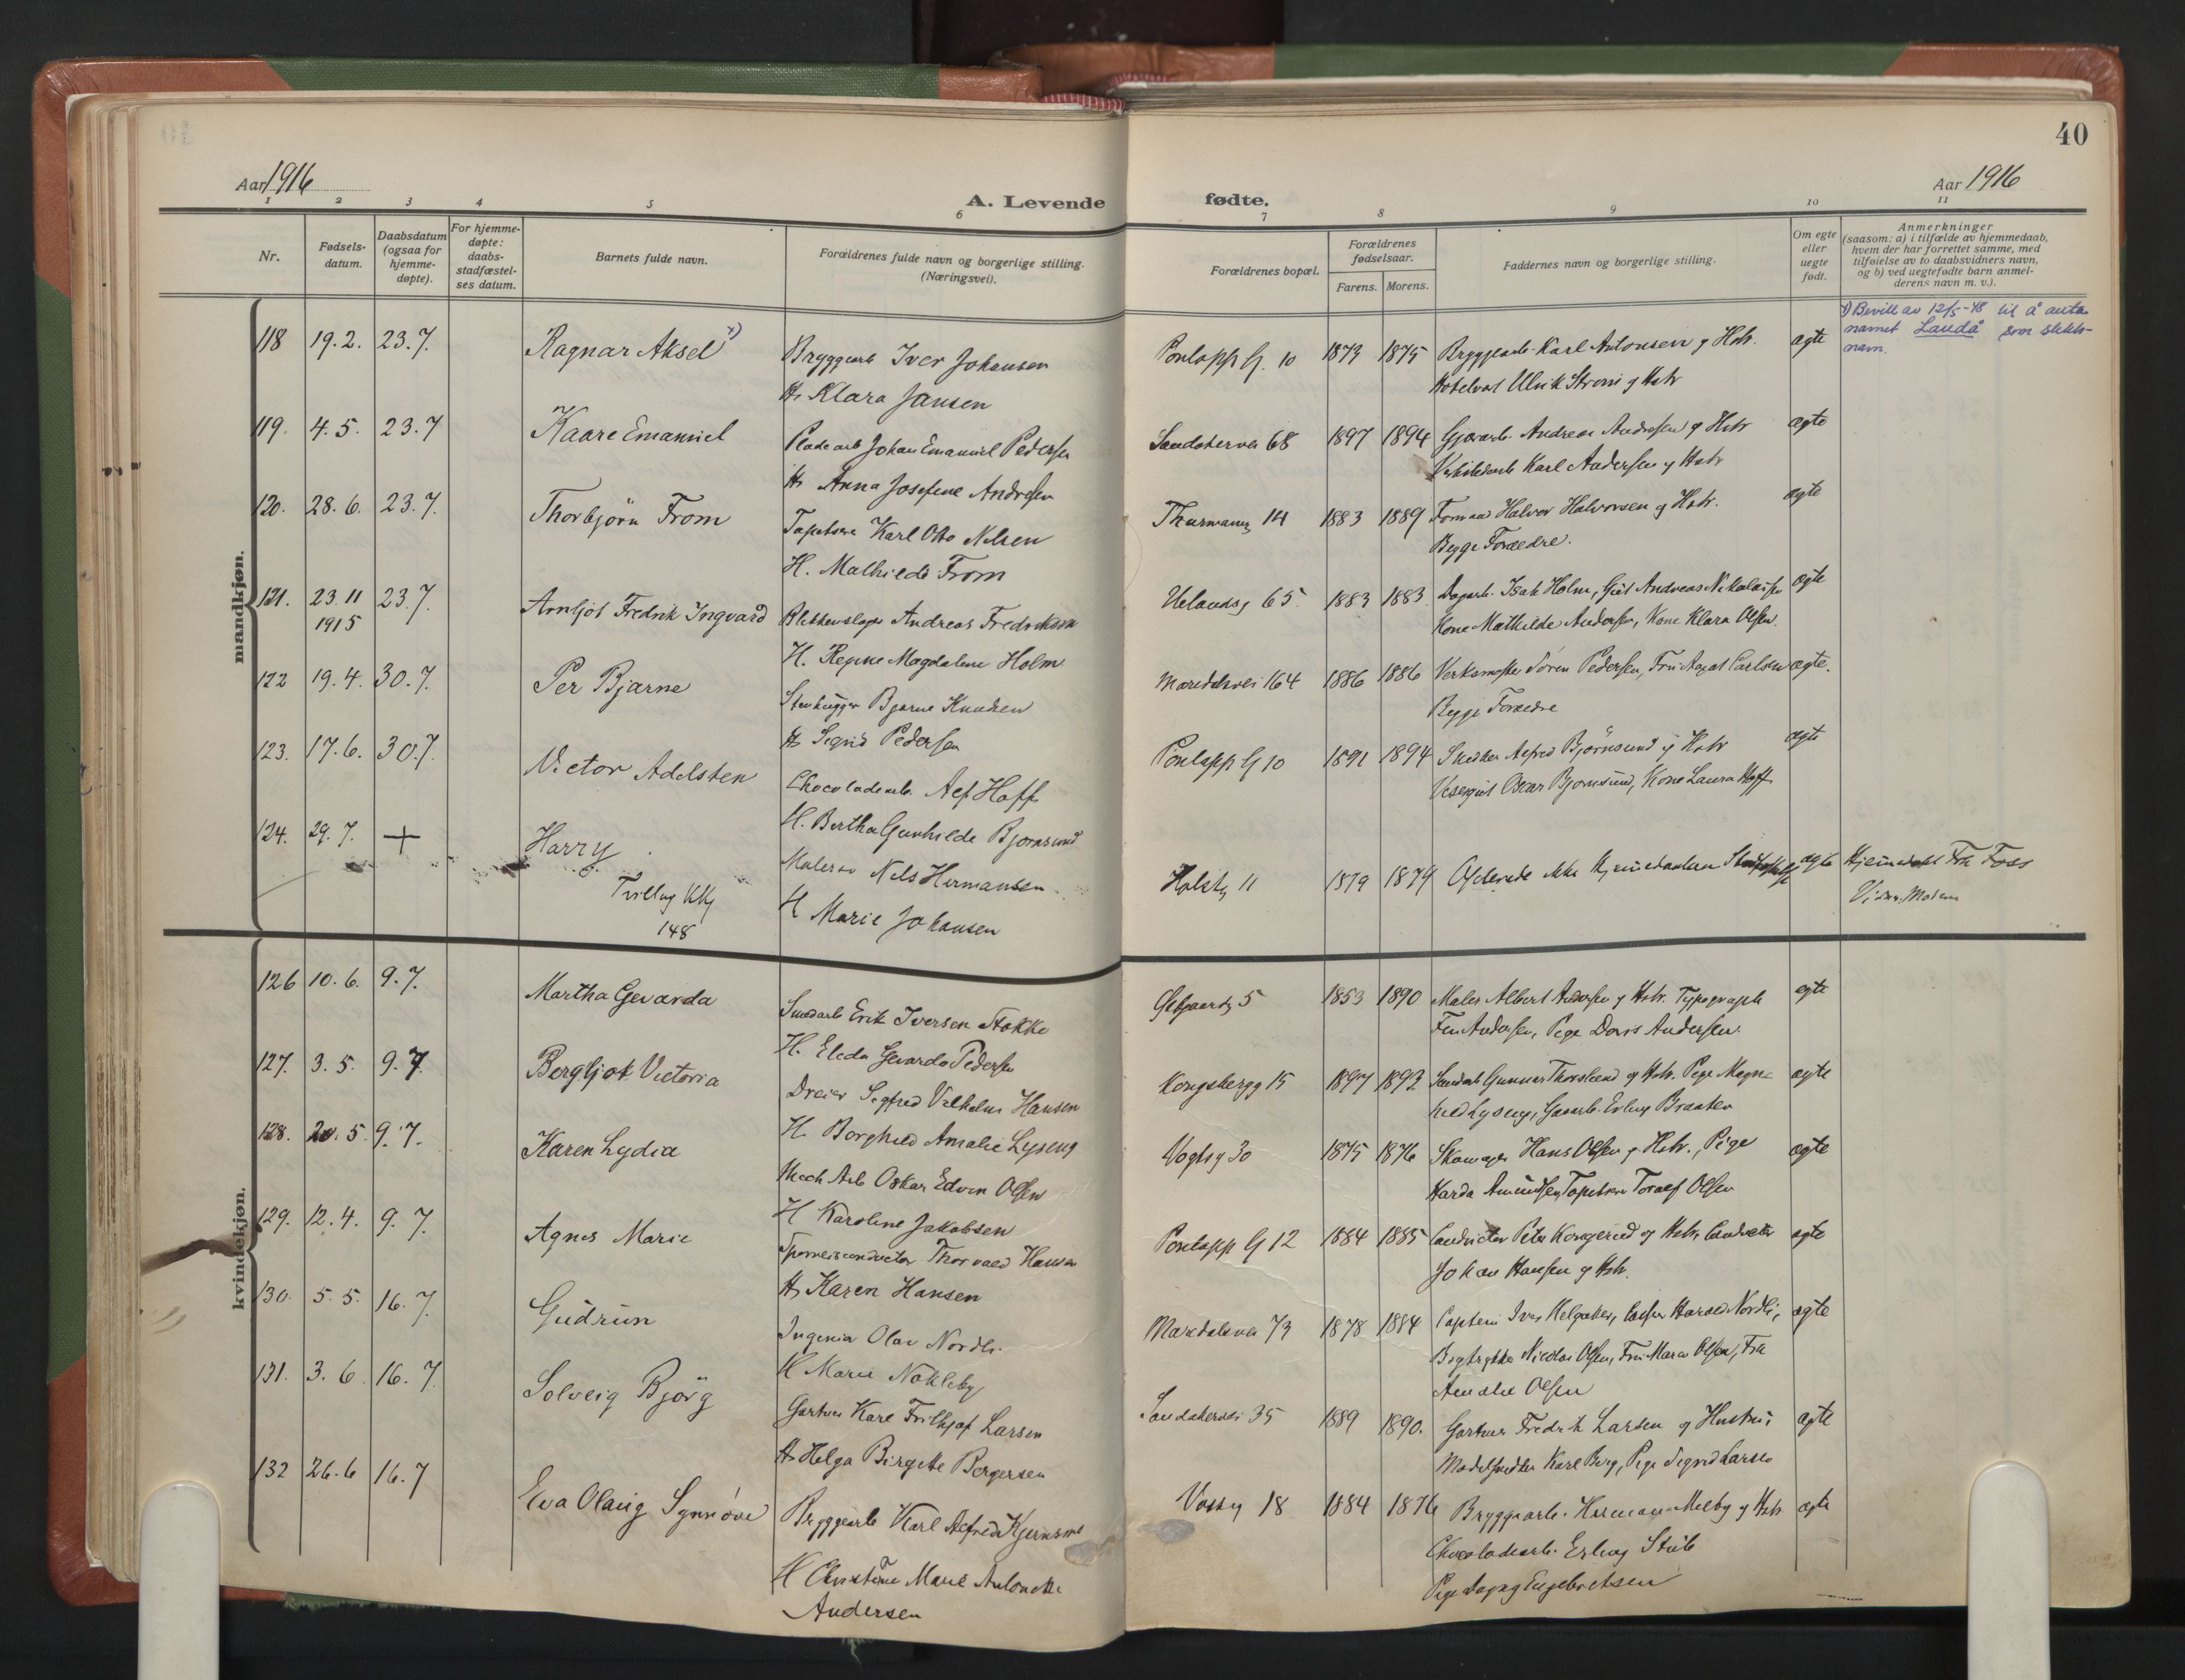 40
Aar 1916
Aar 1916
A. Levende fødte.
1 2 3 4 5 6 7 8 9 10 11
Nr.
Fødsels-
datum.
Daabsdatum
(ogsaa for
hjemme-
døpte).
For hjemme-
døpte:
daabs-
stadfæstel-
ses datum.
Barnets fulde navn.
Forældrenes fulde navn og borgerlige stilling.
(Næringsvei).
Forældrenes bopæl.
Forældrenes
fødselsaar.
Farens. Morens.
Faddernes navn og borgerlige stilling.
Om egte
eller
uegte
født.
Anmerkninger
(saasom: a) i tilfælde av hjemmedaab,
hvem der har forrettet samme, med
tilføielse av to daabsvidners navn,
og b) ved uegtefødte barn anmel-
derens navn m. v.).
mandkjøn.
118 19.2. 23.7. Ragnar Aksel x)
Bryggearb Iver Johansen
H. Klara Jansen
G. 10 1873 1875
Bryggearb. Karl Antonsen og Hstr.
Ulrik Strøm og Hstr
ægte
x) Bevill av 12/5-48 til å anta
namet Laudå som slekts-
nam.
119. 4.5. 23.7 Kaare Emanuel
Johan Emanuel Pedersen
H. Anna Josefine Andresen
Sandakervei 68 1897 1894
Andreas Andresen og Hstr
Karl Andersen og Hstr
ægte
120. 28.6. 23.7. Thorbjörn From
Tapetserer Karl Otto Nilsen
H. Mathilde From
Thurmannsg 14 1883 1889
Formand Halvor Halvorsen og Hstr.
Begge Forældre.
ægte
121. 23.11 23.7. Arnljot Fredrik Ingvard
1915
Blikkenslager Andreas Fredriksen
H. Regine Magdalene Holm
Uelandsg 65. 1883 1883
Dagarb. Isak Holm, Andreas Nikolaisen
Kone Mathilde Andersen, Kone Klara Olsen.
ægte
122 19.4. 30.7. Per Bjarne
Stenhugger Bjarne Knudsen
H. Sigrid Pedersen
Maridalsvei 164 1886 1886
Verksmester Søren Pedersen, Fru Carlsen
Begge Forældre
ægte.
123. 17.6. 30.7. Victor Adelsten
Chocoladearb. Alf Hoff
H. Bertha Gunhilde Bjørnsund
G 10 1891 1894
Snedker Alfred Bjørnsund og Hstr
Oscar Bjørnsund, Kone Laura Hoff
ægte
124. 29.7. + Harry.
Tvilling KKj
148
Malersv Nils Hermansen
H Marie Johansen
Holstsg 11 1879 1879
ikke Hjemmedaaben
ægte Hjemdøbt Fru Foss
Moderen
kvindekjøn.
126 10.6. 9.7. Martha Gerarda
Erik Iversen Stokke
H. Gerarda Pedersen
5 1853 1890
Maler Albert Andersen og Hstr. Typograph
Andersen, Pige Doris Andersen.
egte
127. 3.5. 9.7. Bergljot Victoria
Dreier Sigfred Vilhelm Hansen
H. Borghild Amalie Lyseng
Kongsbergg 15 1897 1892
Gunnar Thorslund og Hstr. Pige Magn-
hild Lyseng, Erling Braaten
ægte
128. 20.5. 9.7. Karen Lydia
Mech Arb Oskar Edvin Olsen
H Karoline Jakobsen
Vogtsg 30 1875 1876
Skomager Hans Olsen og Hstr., Pige
Harda Amundsen, Tapetserer Toralf Olsen
ægte
129. 12.4. 9.7. Agnes Marie
Sporveisconductør Thorvald Hansen
H. Karen Hansen
G 12 1884 1885
Conductør Peter Kongerud og Hstr, Conductør
Johan Hansen og Hstr.
ægte
130. 5.5. 16.7. Gudrun
Ingeniør Olav Nordli.
H Marie Nökleby
Maridalsvei 73 1878 1884
Captein Iver Helgaker, Harald Nordli,
Bogtrykker Nicolai Olsen, Fru Maren Olsen, Fru
Amalie Olsen
ægte
131. 3.6. 16.7. Solveig Bjørg
Gartner Karl Frithjof Larsen
H. Helga Birgitte Bergersen
Sandakervei 35 1889 1890.
Gartner Fredrik Larsen og Hustru,
Modelsnedker Karl Berg, Pige Sigrid Larsen
ægte
132 26.6 16.7 Eva Olaug Synnöve
Bryggearb Karl Alfred Kjernsmo
H Christine Marie Antonette
Andersen
Vossg 18 1884 1876
Bryggearb. Herman Melby og Hstr
Chocoladearb. Erling Stub
Pige Dagny Engebretsen
ægte